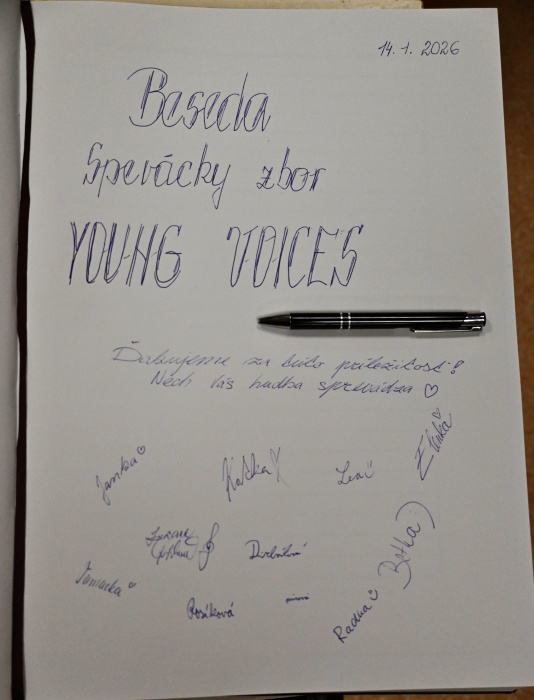 14. 1. 2026
Beseda
Spevácky zbor
YOUNG VOICES
Ďakujeme za túto príležitosť!
Nech Vás hudba sprevádza ♡
Janka
Katka
Leni
Elinka
Betka :)
Rosíková
Radka